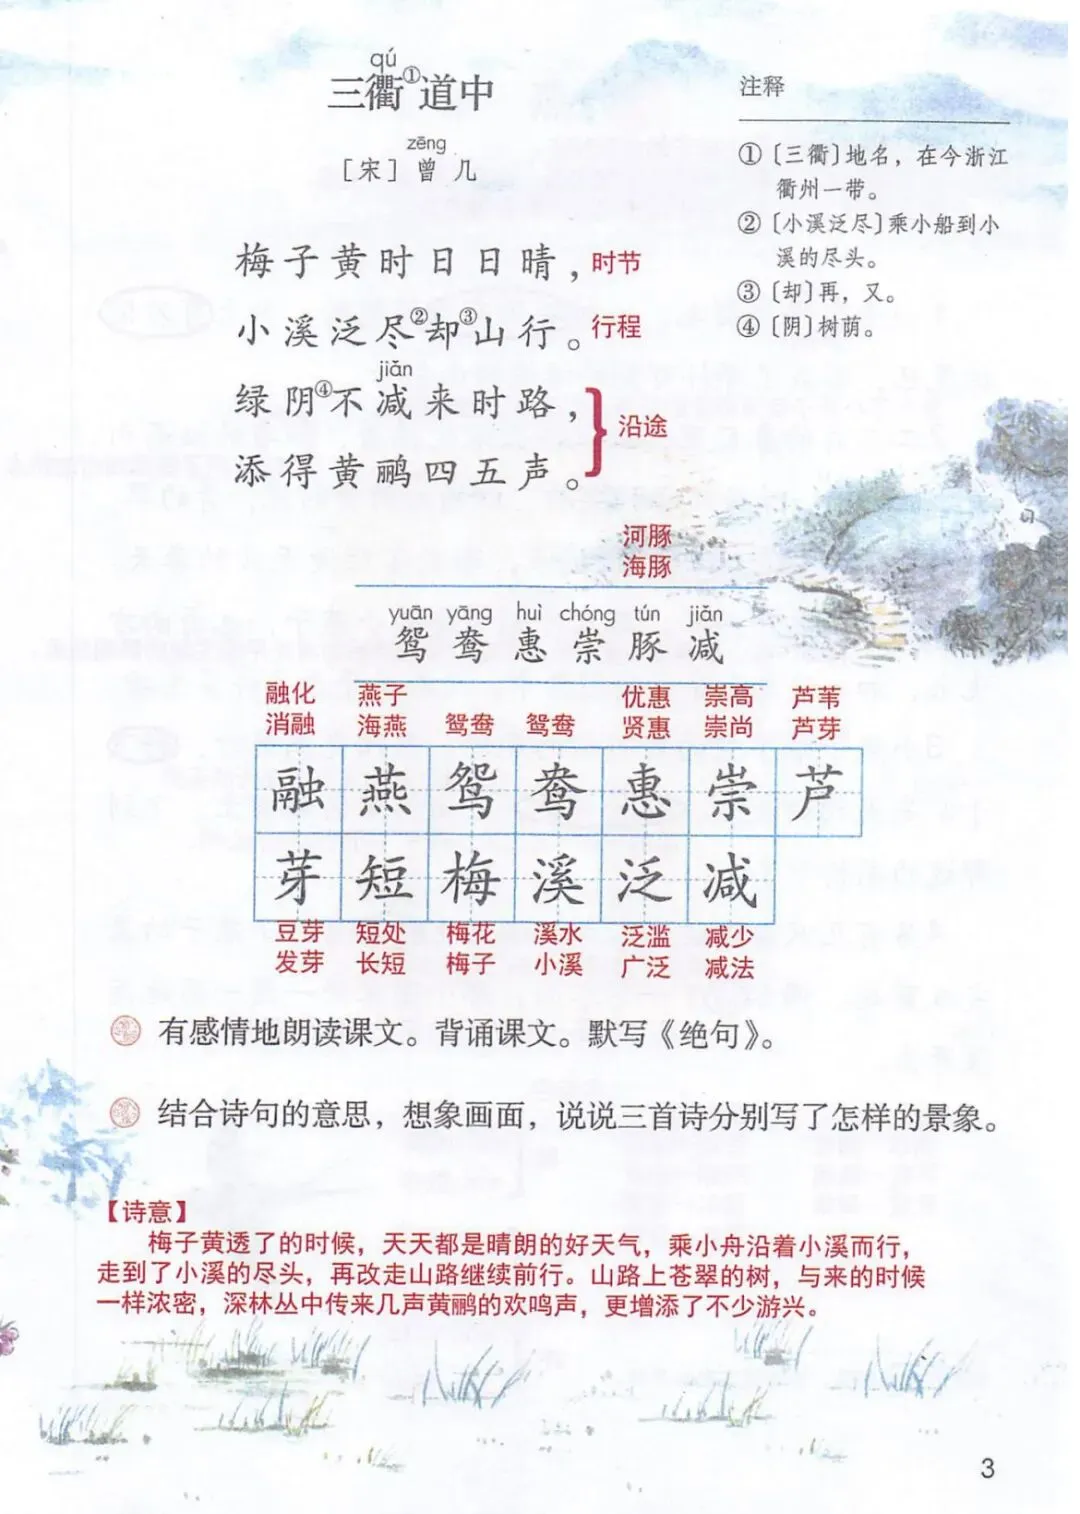 qú
三衢①道中
zēng
［宋］曾几
梅子黄时日日晴，时节
小溪泛尽②却③山行。行程
jiǎn
绿阴④不减来时路，
沿途
添得黄鹂四五声。
注释
①〔三衢〕地名，在今浙江
衢州一带。
②〔小溪泛尽〕乘小船到小
溪的尽头。
③〔却〕再，又。
④〔阴〕树荫。
河豚
海豚
yuān yāng huì chóng tún jiǎn
鸳鸯惠崇豚减
融化 燕子 优惠 崇高 芦苇
消融 海燕 鸳鸯 鸳鸯 贤惠 崇尚 芦芽
融燕鸳鸯惠崇芦
芽短梅溪泛减
豆芽 短处 梅花 溪水 泛滥 减少
发芽 长短 梅子 小溪 广泛 减法
有感情地朗读课文。背诵课文。默写《绝句》。
结合诗句的意思，想象画面，说说三首诗分别写了怎样的景象。
【诗意】
梅子黄透了的时候，天天都是晴朗的好天气，乘小舟沿着小溪而行，
走到了小溪的尽头，再改走山路继续前行。山路上苍翠的树，与来的时候
一样浓密，深林丛中传来几声黄鹂的欢鸣声，更增添了不少游兴。
3